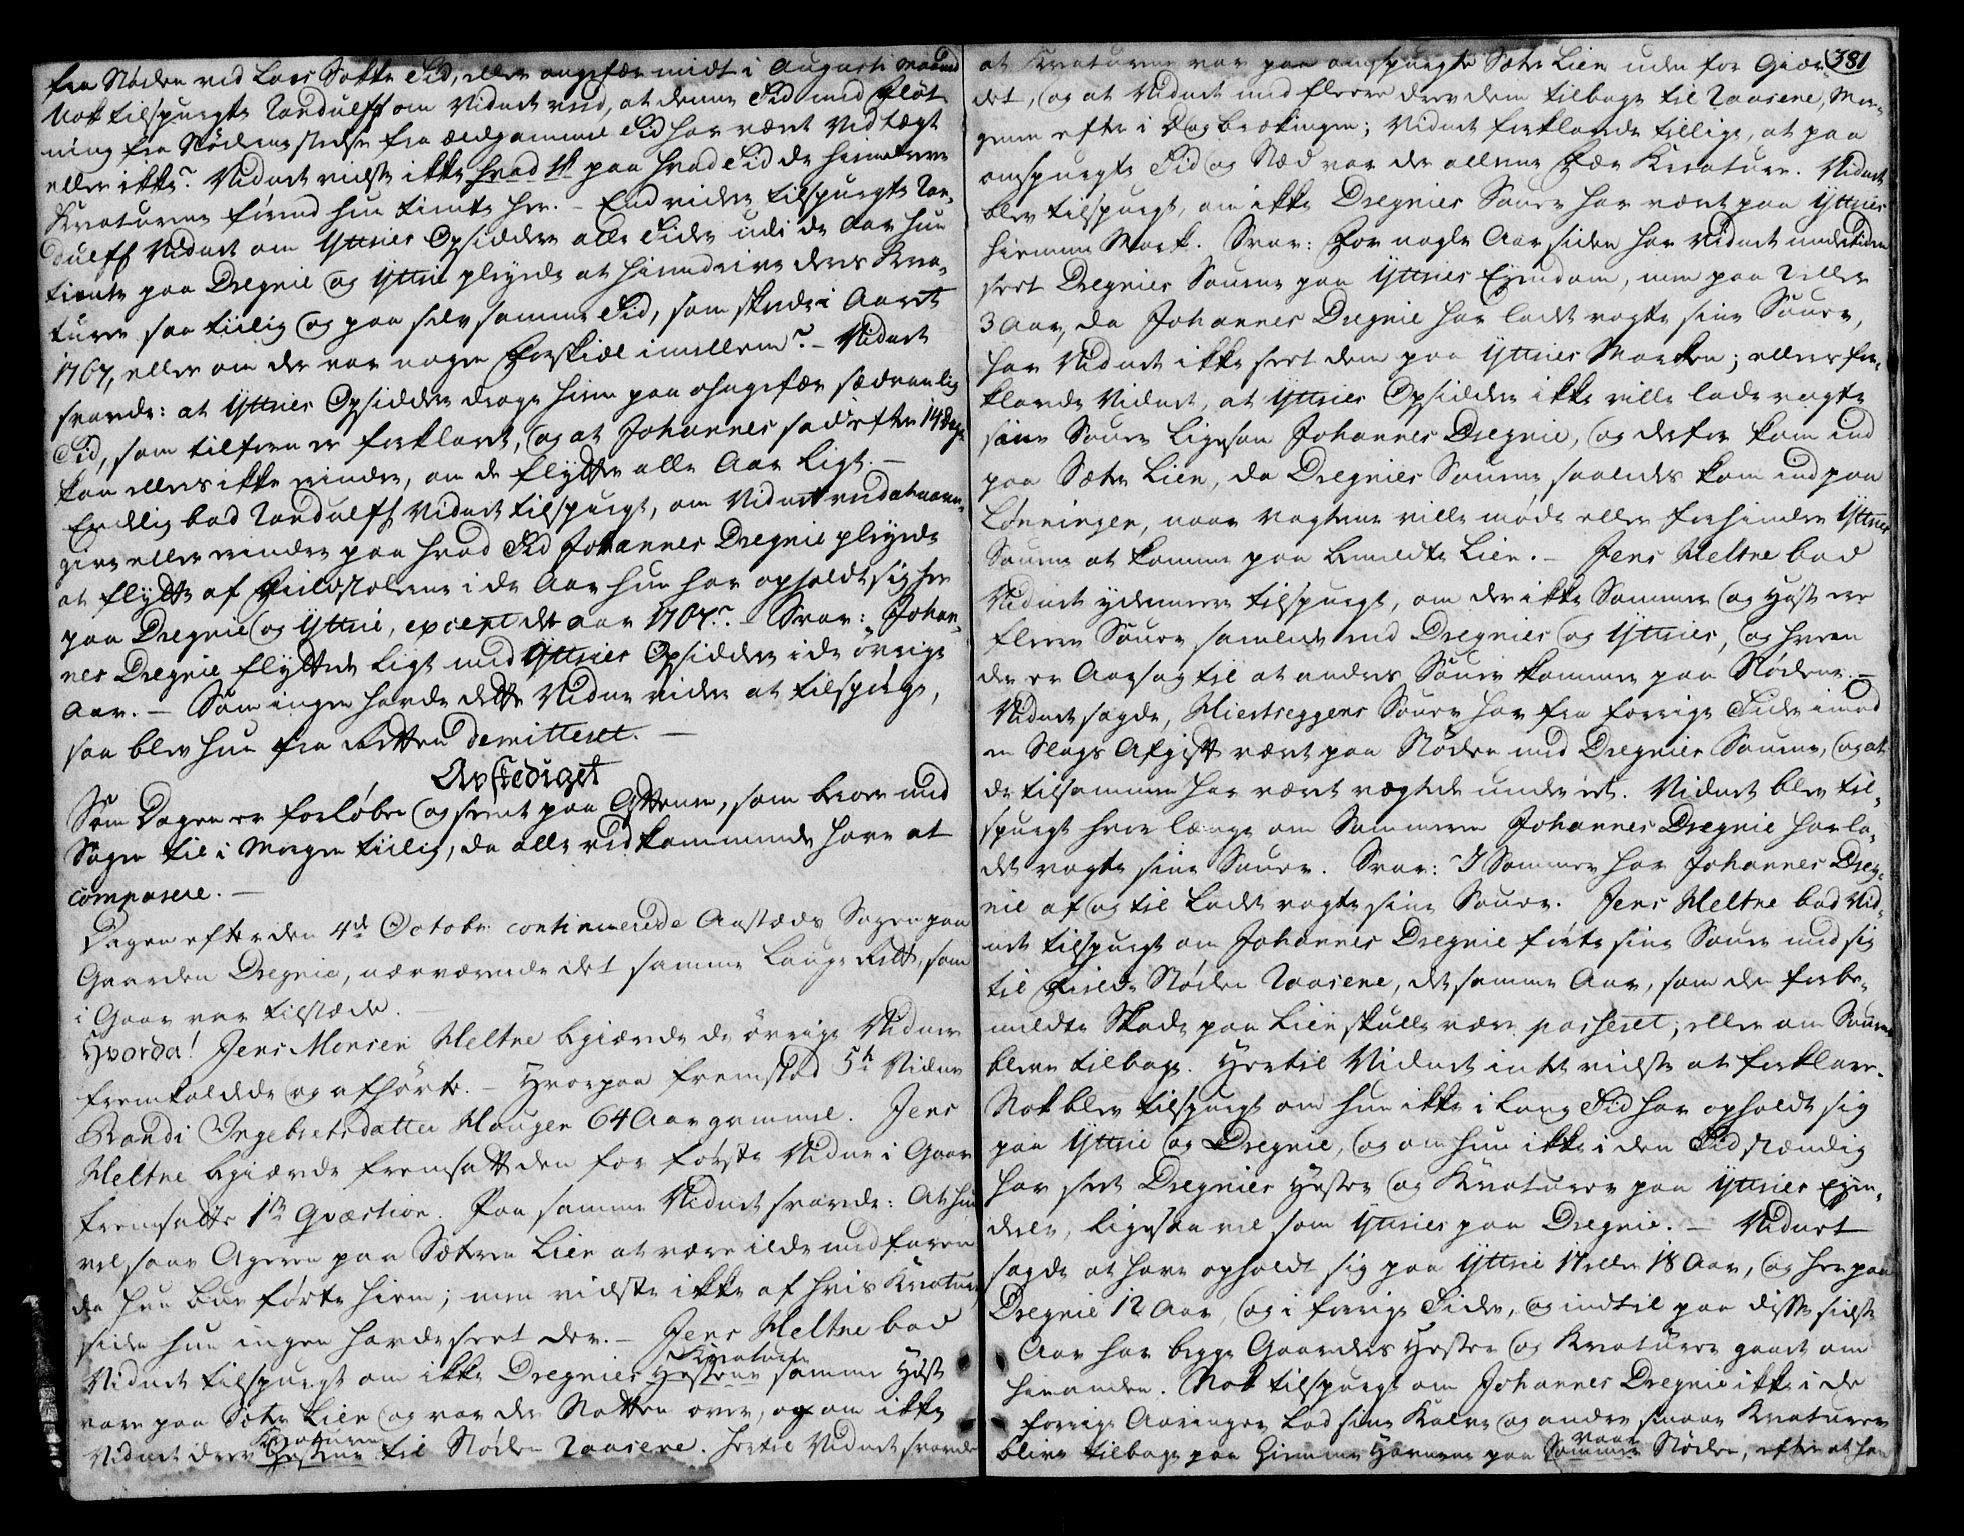 fra Støden ved Lars Sokke Tid, eller ongefær midt i Augusti Maaned
Nok tilspurgte Randulff om Vidnet veed, at denne Tid med Fløt-
ning fra Stødene stedse fra ældgammel Tid har været Vedtægt
eller ikke? Vidnet vidste ikke hvad sk paa hvad Tid de hiemførte
Kreaturene førend hun tiente her. – End videre tilspurgte Ran-
dulff Vidnet om Yttries Opsiddere alle Tider udi de Aar hun
tiente paa Dregnie og Yttrie pleyede at hiemdrive deres Krea-
turer saa tiilig og paa selv samme Tid, som skede i Aaret
1767, eller om der var nogen Forskiæl imellem? – Vidnet
svarede: at Yttries Opsiddere droge hiem paa ohngefær sædvanlig
Tid, som tilforn er forklaret, og at Johannes sad efter 14 Dage
kan ellers ikke minde, om de flyttede alle Aar ligt. –
Endelig bad Randulff Vidnet tilspurgt, om Vidnet veed at navn-
give eller minder paa hvad Tid Johannes Dregnie pleyede
at flytte af Fieldstølene i de Aar hun har opholdt sig her
paa Dregnie og Yttrie, except det Aar 1767? – Svar: Johan-
nes Dregnie flyttede ligt med Yttries Opsiddere i de øvrige
Aar. – Som ingen havde dette Vidne videre at tilspørge,
saa blev hun fra Retten demitteret. –
Avskediget
Som Dagen er forløben og seent paa Aftenen, som beroer med
Sagen til i Morgen tiilig, da alle vedkommende have at
comparere. –
Dagen efter den 4de Octobr. continuerede Aastæds Sagen paa
Gaarden Dregnie, nærværende det samme Laug Rett, som
i Gaar var tilstæde. –
Hvorda! Jens Monsen Meltne begiærede de øvrige Vidner
fremkaldede og afhørte. – Hvorpaa fremstod 5te Vidne
Brandi Ingebretsdatter Haugen 64 Aar gammel. Jens
Meltne begiærede fremsatt den for første Vidne i Gaar
fremsatte 1te Qvæstion. Paa samme Vidnet svarede: At hun
vel saae Ageren paa Sæteren Lien at være ilde medfaren
da hun bue førte hiem; men vidste ikke af hvis Kreature
siden hun ingen havde seet der. – Jens Meltne bad
Vidnet tilspurgt om ikke Dregnies Hestene Kreature samme Høst
vare paa Sæter Lien og var der Natten over, og om ikke
Vidnet drev Hestene Kreaturene til Støden Raasene. Hertil Vidnet svarede
381
at Kreaturene var paa omspurgte Sæter Lien uden for Giær-
det, og at Vidnet med fleere drev dem tilbage til Raasene, Mor-
genen efter i Dagbrækningen; Vidnet forklarede tillige, at paa
omspurgte Tid og Stæd var der allene Fæe Kreature. Vidnet
blev tilspurgt, om ikke Dregnies Souer har været paa Yttries
hiemme Mark. Svar: For nogle Aar siden har Vidnet undertiden
seet Dregnies Souene paa Yttries Eyendom, men paa 2 eller
3 Aar, da Johannes Dregnie har ladet vogte sine Souer,
har Vidnet ikke seet dem paa Yttries Marken; ellers for-
klarede Vidnet, at Yttries Opsiddere ikke ville lade vogte
sine Souer ligesom Johannes Dregnie, og derfor kom ind
paa Sæter Lien, da Dregnies Souene saaledes kom ind paa
Lønningen, naar Vogterne ville møde eller forhindre Yttries
Souene at komme paa bemeldte Lien. – Jens Meltne bad
Vidnet ydermere tilspurgt, om der ikke Sommer og Høst ere
fleere Souer samlede end Dregnies og Yttries, og hvem
der er Aarsag til at andres Souer kommer paa Stødene. –
Vidnet sagde, Miertseggens Souer har fra forrige Tider imod
en Slags Afgift været paa Støden med Dregnies Souene, og at
de tilsammen har været vogtede under eet. Vidnet blev til-
spurgt hvor længe om Sommeren Johannes Dregnie har la-
det vogte sine Souer. Svar: I Sommer har Johannes Dreg-
nie af og til ladet vogte sine Souer. Jens Meltne bad Vid-
net tilspurgt om Johannes Dregnie førte sine Souer med sig
til Fields Støden Raasene, det samme Aar, som den forbe-
meldte Skade paa Lien skulle være passeret; eller om Souene
bleve tilbage. Hertil Vidnet intet vidste at forklare.
Nok blev tilspurgt om hun ikke i lang Tid har opholdt sig
paa Yttrie og Dregnie, og om hun ikke i den Tid stændig
har seet Dregnies Hester og Kreaturer paa Yttries Eyen-
dele, ligesaa vel som Yttries paa Dregnie. – Vidnet
sagde at have opholdt sig paa Yttrie 17 eller 18 Aar, og her paa
Dregnie 12 Aar, og i forrige Tider, og indtil paa disse sidste
Aar har begge Gaardes Hester og Kreaturer gaaet om
hinanden. Nok tilspurgt om Johannes Dregnie ikke i de
forrige Aaringer lod sine Kalve og andre smaae Kreaturer
blive tilbage paa Hiemme Havnene paa Sommer vaar Støden, efter at han